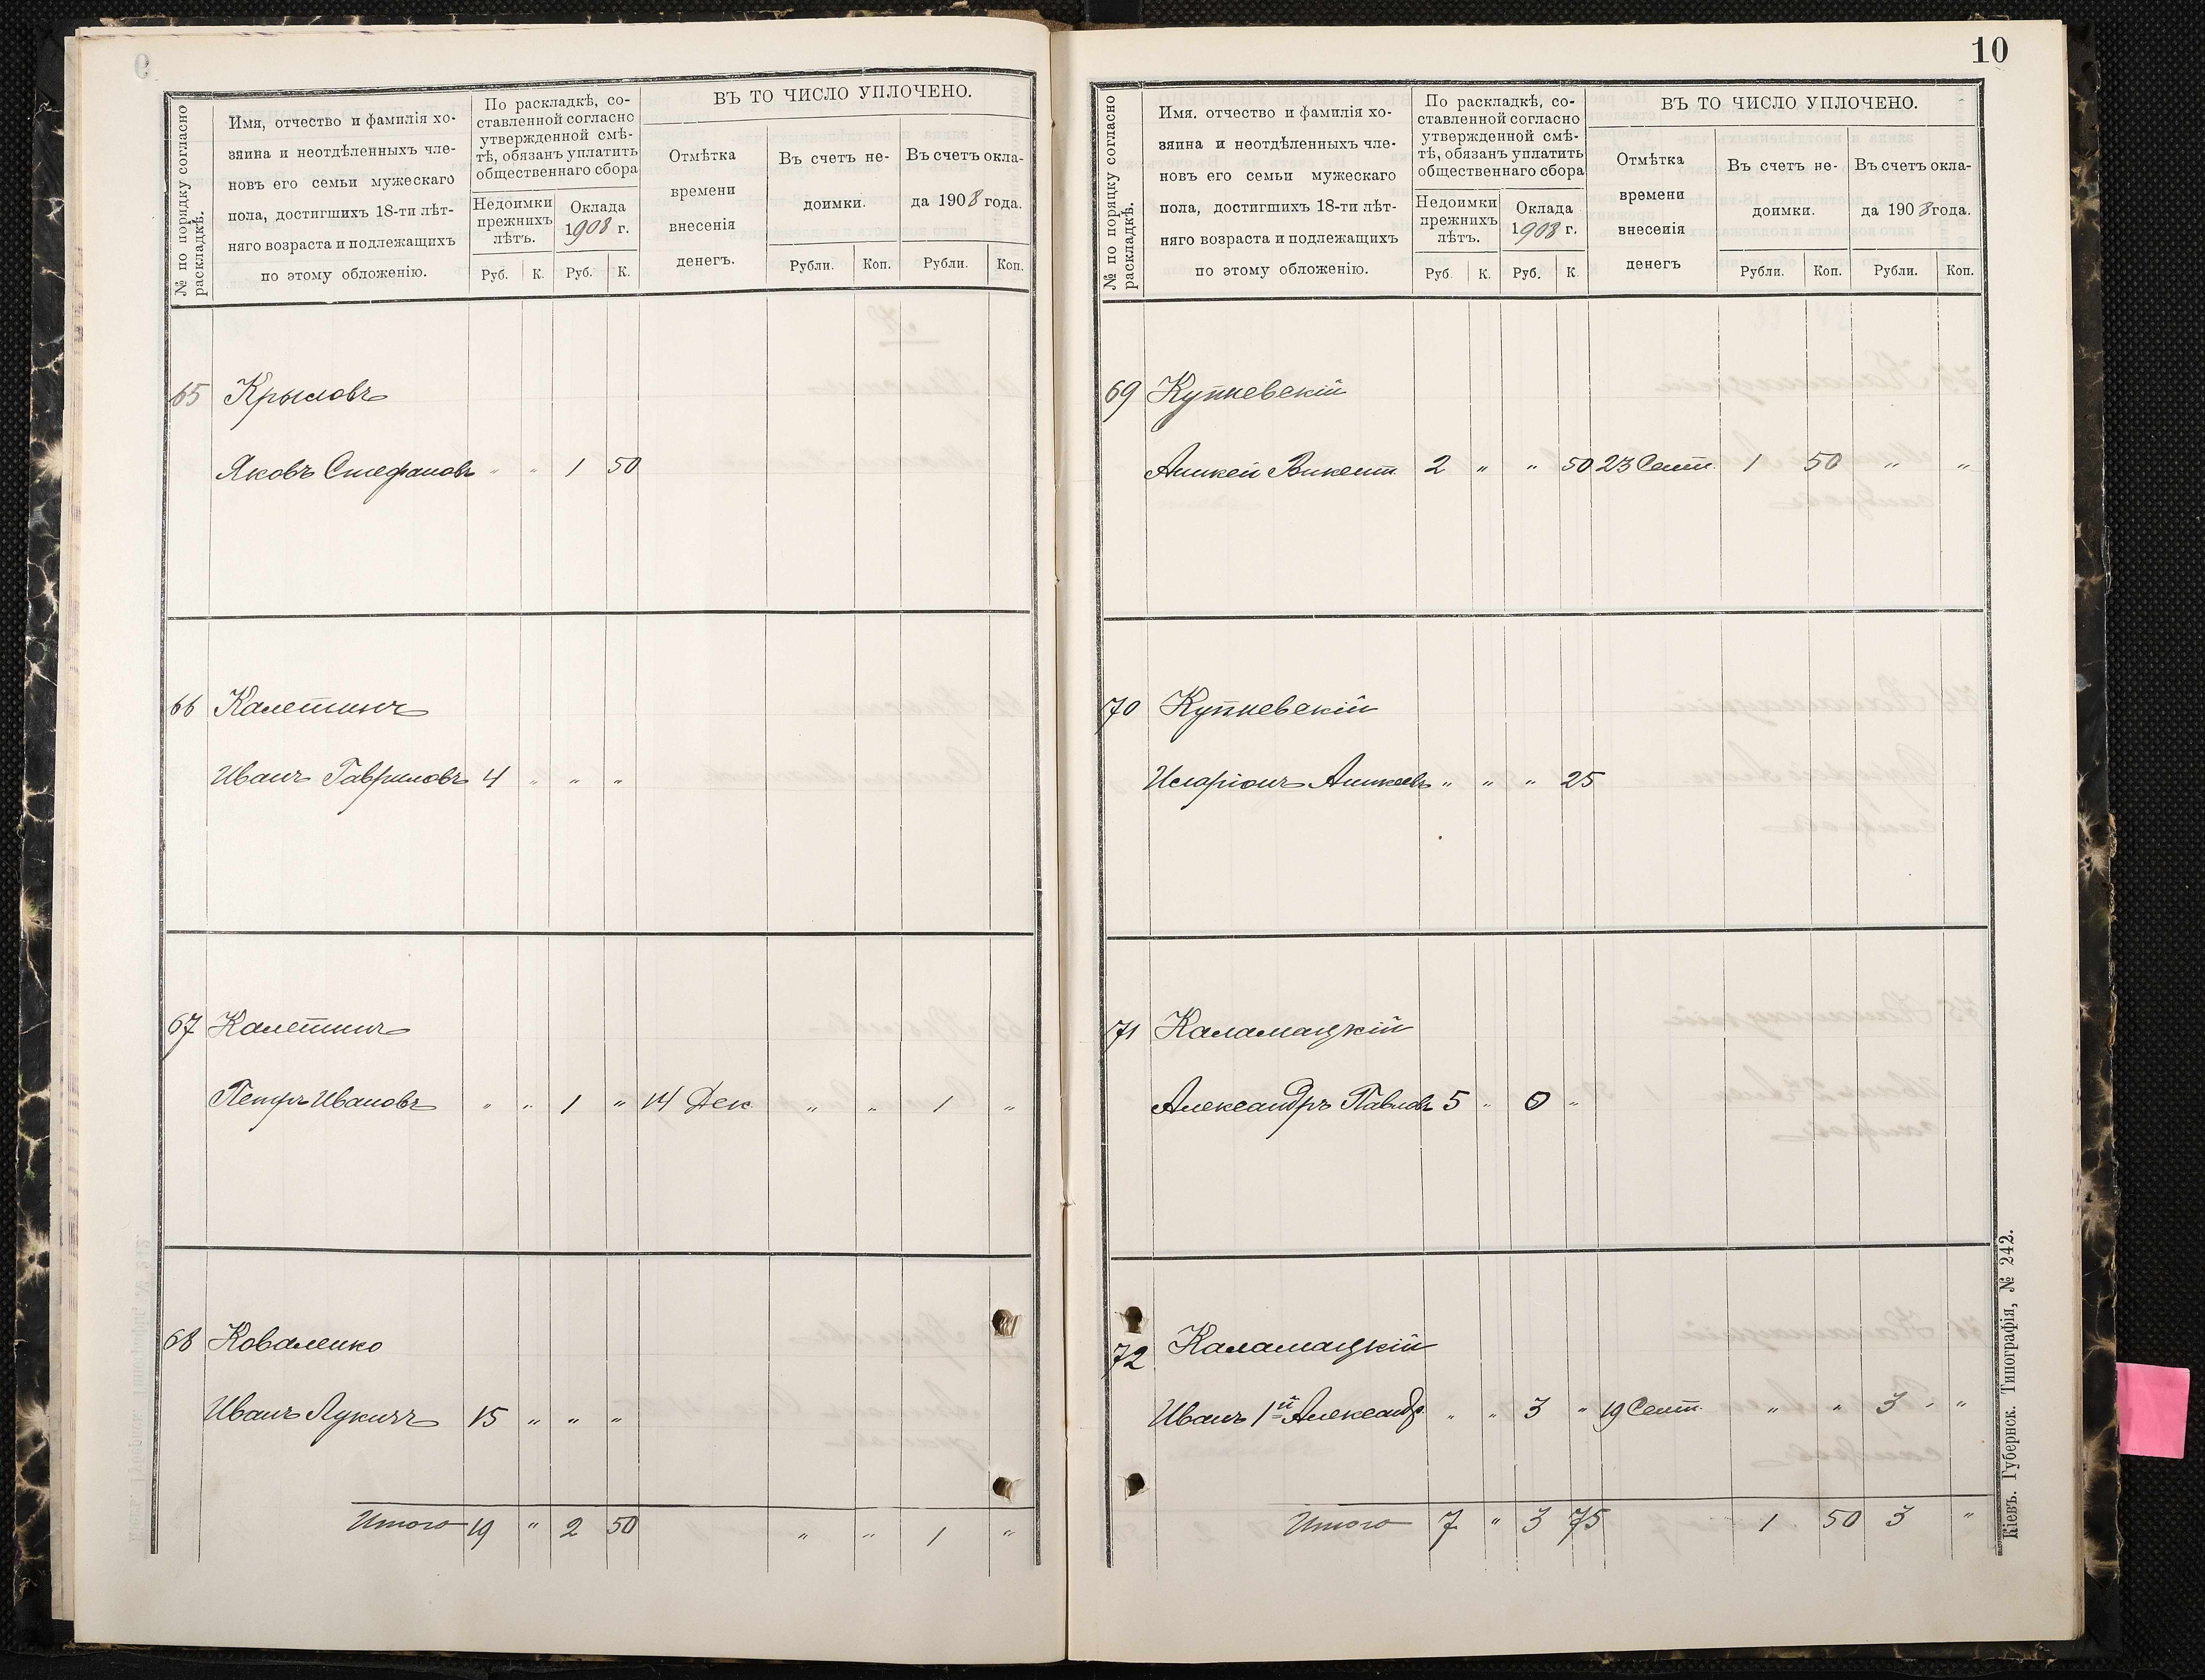 № по порядку согласно
раскладкѣ.
Имя, отчество и фамилія хо-
зяина и неотдѣленныхъ чле-
новъ его семьи мужескаго
пола, достигшихъ 18-ти лѣт-
няго возраста и подлежащихъ
по этому обложенію.
По раскладкѣ, со-
ставленной согласно
утвержденной смѣ-
тѣ, обязанъ уплатить
общественнаго сбора
Недоимки
прежнихъ
лѣтъ.
Оклада
1908 г.
Руб. К. Руб. К.
ВЪ ТО ЧИСЛО УПЛОЧЕНО.
Отмѣтка
времени
внесенія
денегъ.
Въ счетъ не-
доимки.
Въ счетъ окла-
да 1908 года.
Рубли. Коп. Рубли. Коп.
65 Крыловъ
Яковъ Стефановъ " " 1 50
66 Калетинъ
Иванъ Гавриловъ 4 " " "
67 Калетинъ
Петръ Ивановъ " " 1 " 14 Дек " " 1 "
68 Коваленко
Иванъ Лукичъ 15 " " "
Итого 19 " 2 50 " " 1 "
10
№ по порядку согласно
раскладкѣ.
Имя. отчество и фамилія хо-
зяина и неотдѣленныхъ чле-
новъ его семьи мужескаго
пола, достигшихъ 18-ти лѣт-
няго возраста и подлежащихъ
по этому обложенію.
По раскладкѣ, со-
ставленной согласно
утвержденной смѣ-
тѣ, обязанъ уплатить
общественнаго сбора
Недоимки
прежнихъ
лѣтъ.
Оклада
1908 г.
Руб. К. Руб. К.
ВЪ ТО ЧИСЛО УПЛОЧЕНО.
Отмѣтка
времени
внесенія
денегъ
Въ счетъ не-
доимки.
Въ счетъ окла-
да 1908 года.
Рубли. Коп. Рубли. Коп.
69 Купневскій
2 " " 50 23 Сент. 1 50 " "
70 Купневскій
Иларіонъ " " " 25
71 Каламацкій
Александръ Павловъ 5 " 0 "
72 Каламацкій
Иванъ 1й Александр. " " 3 " 19 Сент. " " 3 "
Итого 7 " 3 75 1 50 3 "
Кіевъ. Губернск. Типографія, № 242.